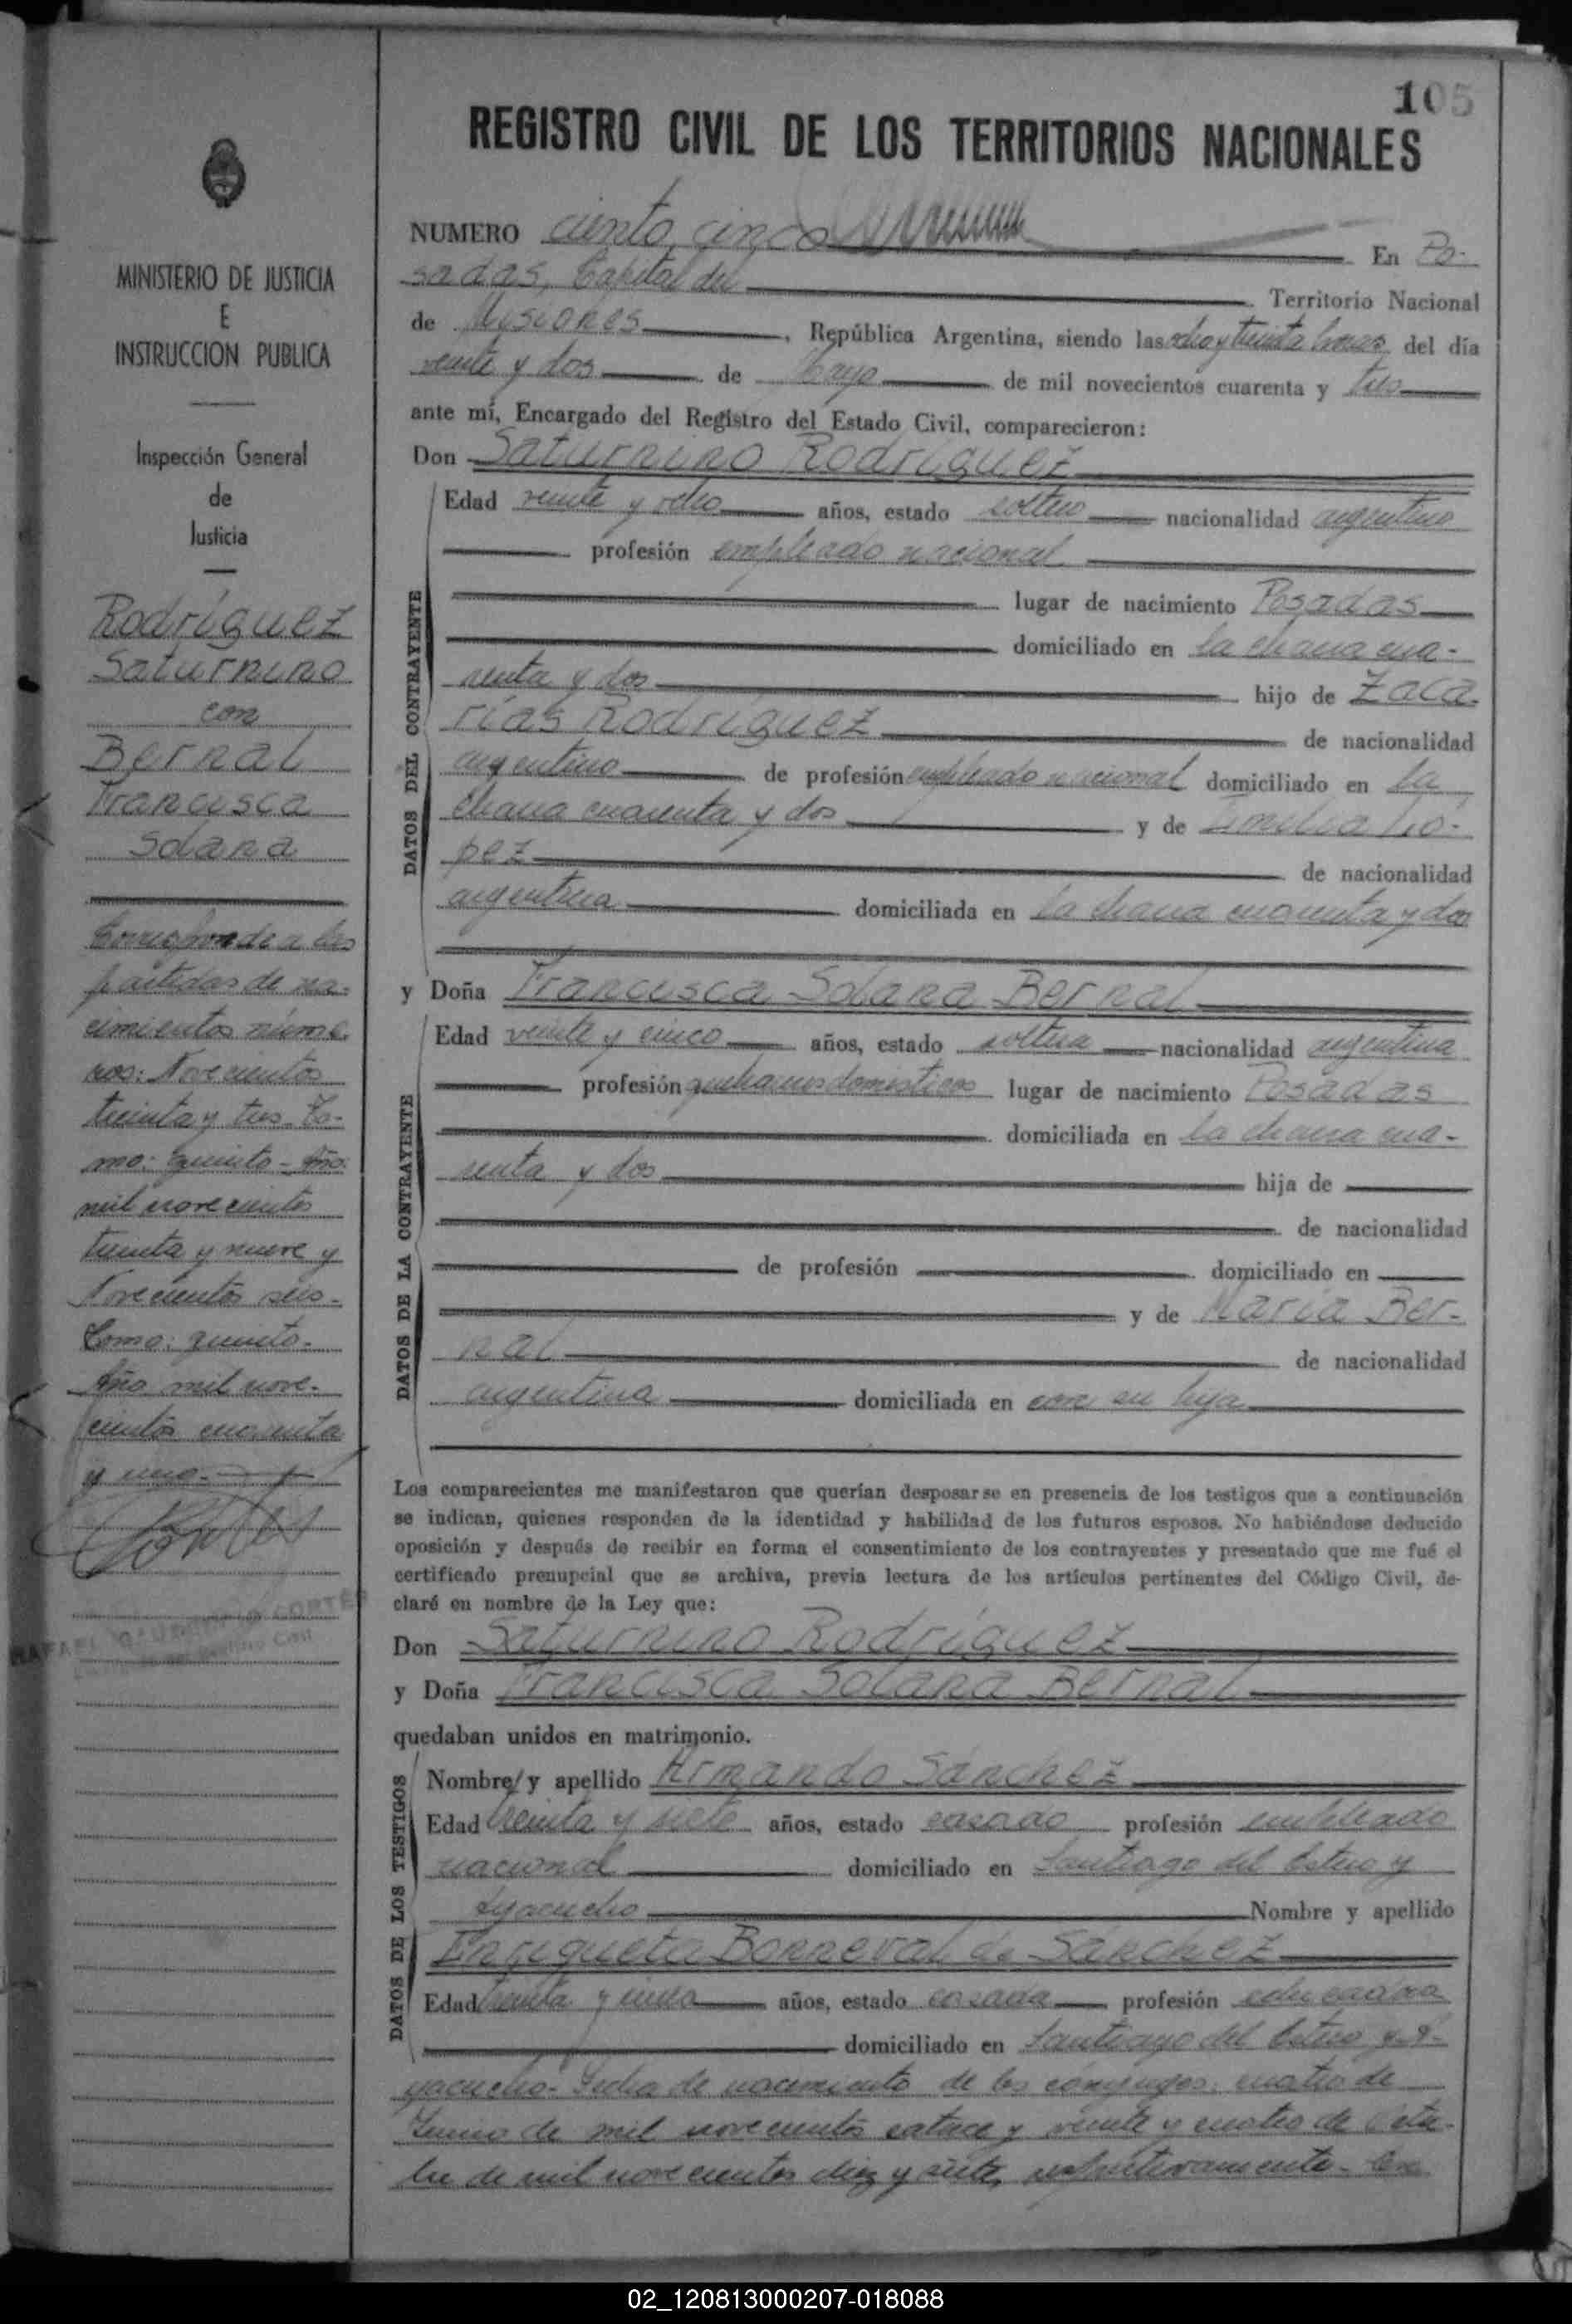 105
REGISTRO CIVIL DE LOS TERRITORIOS NACIONALES
MINISTERIO DE JUSTICIA
E
INSTRUCCION PUBLICA
Inspección General
de
Justicia
Rodríguez
Saturnino
con
Bernal
Francisca
Solana
Corresponde a las
partidas de na-
cimientos núme-
ros: Novecientos
treinta y tres - To-
mo: quinto - Año:
mil novecientos
treinta y nueve y
Novecientos seis -
Tomo: quinto -
Año mil nove-
cientos cuarenta
y uno -
NUMERO ciento cinco En Po-
sadas, Capital del Territorio Nacional
de Misiones, República Argentina, siendo las ocho y treinta horas del día
veinte y dos de Mayo de mil novecientos cuarenta y tres
ante mí, Encargado del Registro del Estado Civil, comparecieron:
Don Saturnino Rodríguez
DATOS DEL CONTRAYENTE
Edad veinte y ocho años, estado soltero nacionalidad argentino
profesión empleado nacional
lugar de nacimiento Posadas
domiciliado en la chacra cua-
renta y dos hijo de Zaca-
rías Rodríguez de nacionalidad
argentino de profesión empleado nacional domiciliado en la
chacra cuarenta y dos y de Emilia Ló-
pez de nacionalidad
argentina domiciliada en la chacra cuarenta y dos
y Doña Francisca Solana Bernal
DATOS DE LA CONTRAYENTE
Edad veinte y cinco años, estado soltera nacionalidad argentina
profesión quehaceres domésticos lugar de nacimiento Posadas
domiciliada en la chacra cua-
renta y dos hija de
de nacionalidad
de profesión domiciliado en
y de María Ber-
nal de nacionalidad
argentina domiciliada en con su hija
Los comparecientes me manifestaron que querían desposarse en presencia de los testigos que a continuación
se indican, quienes responden de la identidad y habilidad de los futuros esposos. No habiéndose deducido
oposición y después de recibir en forma el consentimiento de los contrayentes y presentado que me fué el
certificado prenupcial que se archiva, previa lectura de los artículos pertinentes del Código Civil, de-
claré en nombre de la Ley que:
Don Saturnino Rodríguez
y Doña Francisca Solana Bernal
quedaban unidos en matrimonio.
DATOS DE LOS TESTIGOS
Nombre y apellido Armando Sánchez
Edad treinta y siete años, estado casado profesión empleado
nacional domiciliado en Santiago del Estero y
Ayacucho Nombre y apellido
Enriqueta Bonneval de Sánchez
Edad treinta y años, estado casada profesión educadora
domiciliado en Santiago del Estero y A-
yacucho - Fecha de nacimiento de los cónyuges: cuatro de
Junio de mil novecientos catorce y veinte y cuatro de Octu-
bre de mil novecientos diez y siete, respectivamente -
02_120813000207-018088